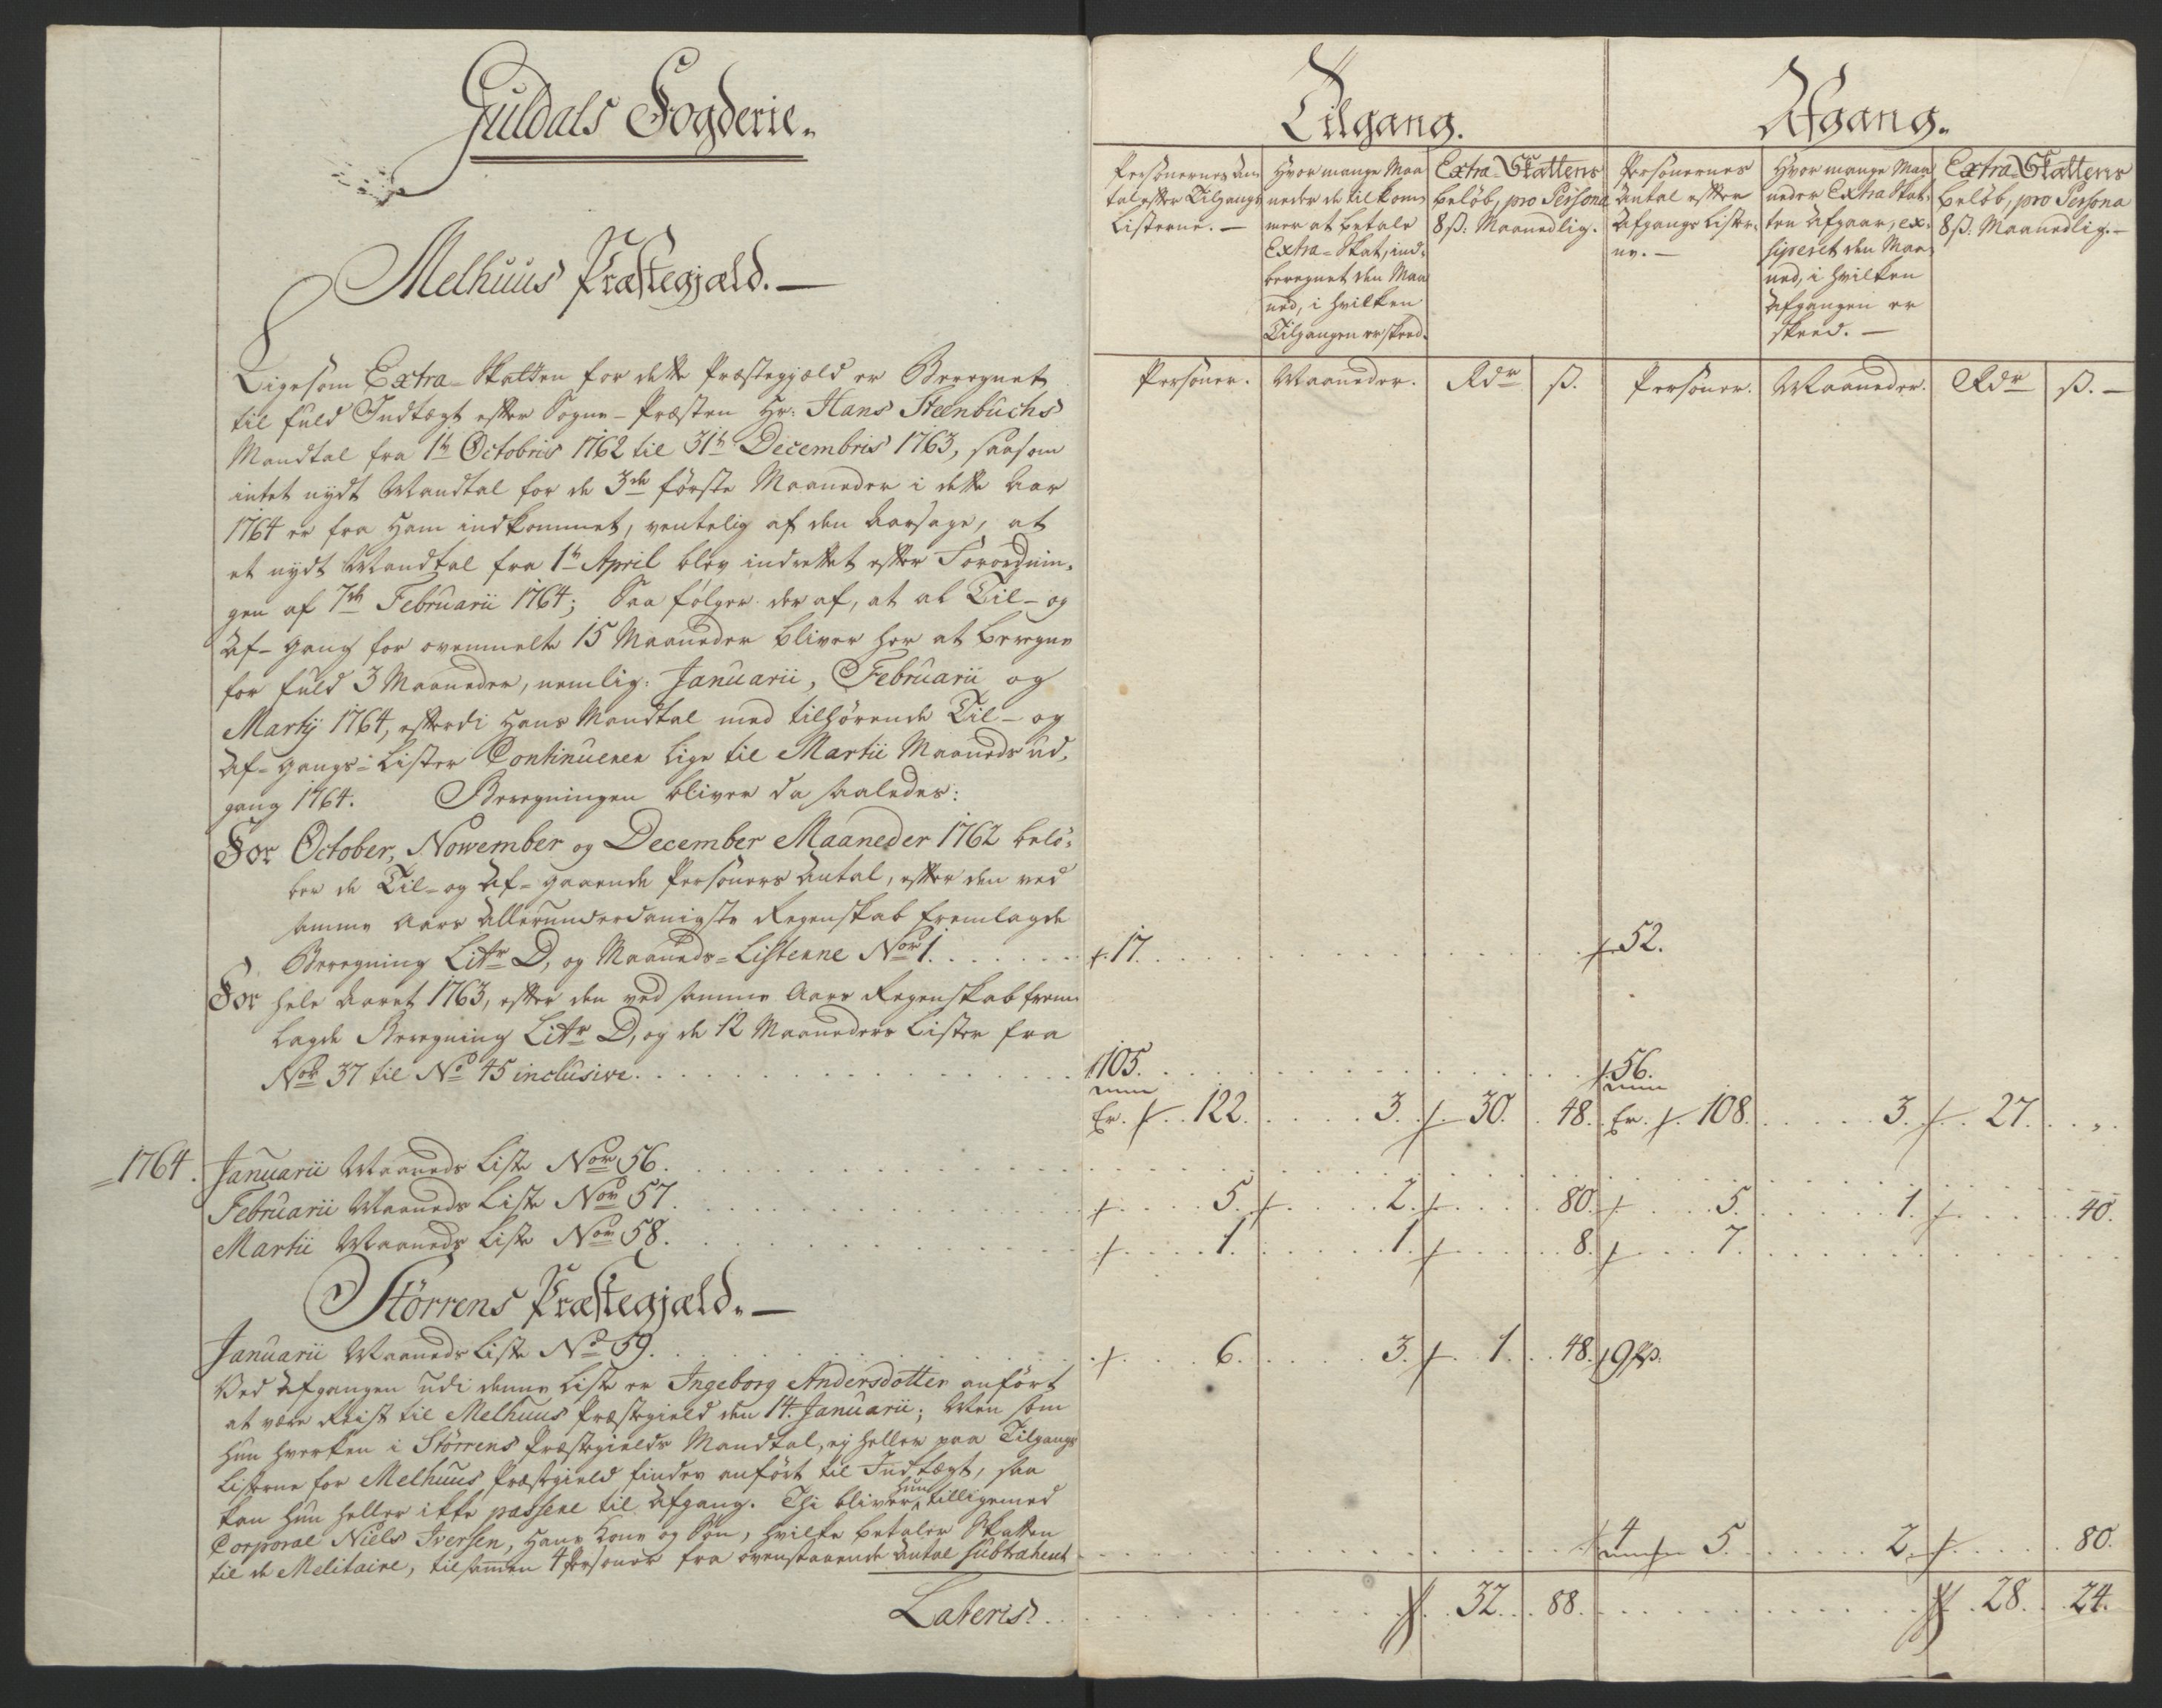 Guldals Fogderie.
Melhuus Præstegjæld. —
Ligesom Extra-Skatten for dette Præstegjæld er Beregnet
til fuld Indtægt efter Sogne-Præsten Hr: Hans Steenbuchs
Mandtal fra 1te Octobris 1762 til 31te Decembris 1763, saasom
intet nydt Mandtal for de 3de første Maaneder i dette Aar
1764 er fra Ham indkommet, ventelig af den Aarsage, at
et nydt Mandtal fra 1te April blev indrettet efter Forordnin-
gen af 7de Februarii 1764; Saa følger der af, at al Til- og
Af-gang for ovenmelte 15 Maaneder bliver her at beregne
for fuld 3 Maaneder, nemlig: Januarii, Februarii og
Martij 1764, efterdi Hans Mandtal med tilhørende Til- og
Af-gangs-Lister Continuerer lige til Martii Maaneds ud-
gang 1764. Beregningen bliver da saaledes:
For October, November og December Maaneder 1762 belø-
ber de Til- og Af-gaaende Personers Antal, efter den ved
samme Aars Allerunderdanigste Regenskab fremlagde
Beregning Litr D, og Maaneds-Listerne Nor 1.
For hele Aaret 1763, efter den ved samme Aars Regenskab frem-
lagde Beregning Litr D, og de 12 Maaneders Lister fra
Nor 37 til No 45 inclusive.
1764. Januarii Maaneds Liste Nor 56.
Februarii Maaneds Liste Nor 57.
Martii Maaneds Liste Nor 58.
Størrens Præstegjæld. —
Januarii Maaneds Liste No 59.
Ved Afgangen udi denne Liste er Ingeborg Andersdotter anført
at være Reist til Melhuus Præstegield den 14. Januarii; Men som
Hun hverken i Størrens Præstegields Mandtal, ej heller paa Tilgangs
Listerne for Melhuus Præstegield findes anført til Indtægt, saa
kan Hun heller ikke passere til Afgang. Thi bliver hun tilligemed
Corporal Niels Iversen, Hans Kone og Søn, hvilke betaler Skatten
til de Melitaire, tilsammen 4 Personer fra ovenstaaende Antal subtrahert
Lateris.
Tilgang.
Personernes An-
tal efter Tilgangs
Listerne. —
Hvor mange Maa
neder de tilkom-
mer at betale
Extra-Skat, ind-
beregnet den Maa
ned, i hvilken
Tilgangen er skeed.
Extra-Skattens
beløb, pro Persona
8 ß. Maanedlig.
Afgang.
Personernes
Antal efter
Afgangs Lister-
ne. —
Hvor mange Maa
neder Extra Skat-
ten Afgaar, ex-
siperet den Maa-
ned, i hvilken
Afgangen er
skeed. —
Extra-Skattens
beløb, pro Persona
8 ß. Maanedlig. —
Personer. Maaneder. Rdr ß. Personer. Maaneder. Rdr ß. —
17. 52.
105. 56.
Er. 122. 3. 30. 48. Er. 108. 3. 27. „
5. 2. 80. 5. 1. 40.
1. 1. 8. 7.
6. 3. 1. 48. 9
4 5. 2. 80.
32. 88. 28. 24.